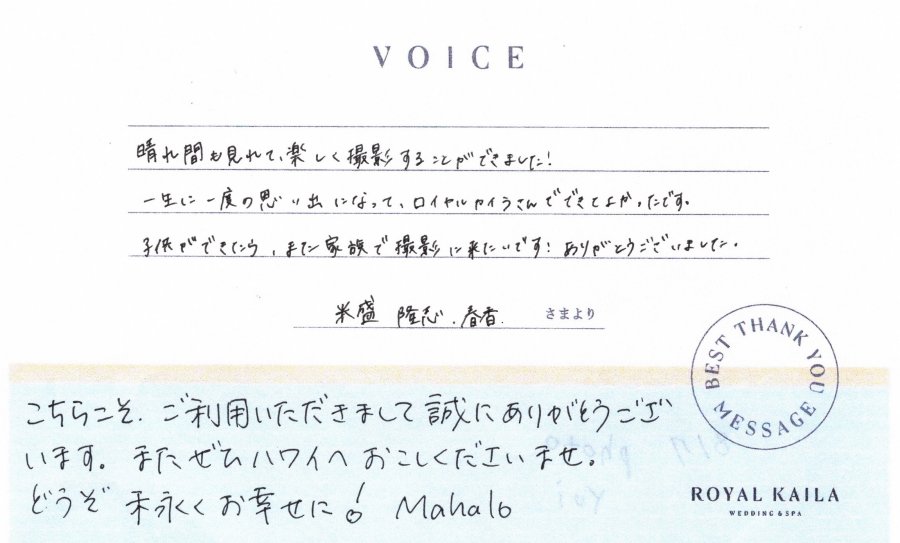 VOICE
晴れ間も見れて、楽しく撮影することができました!
一生に一度の思い出になって、ロイヤルカイラさんでできてよかったです。
子供ができたら、また家族で撮影に来たいです! ありがとうございました。
米盛 隆志.春香. さまより
BEST THANK YOU MESSAGE
こちらこそ、ご利用いただきまして誠にありがとうござ
います。またぜひハワイへおこしくださいませ。
どうぞ末永くお幸せに! Mahalo
ROYAL KAILA
WEDDING & SPA